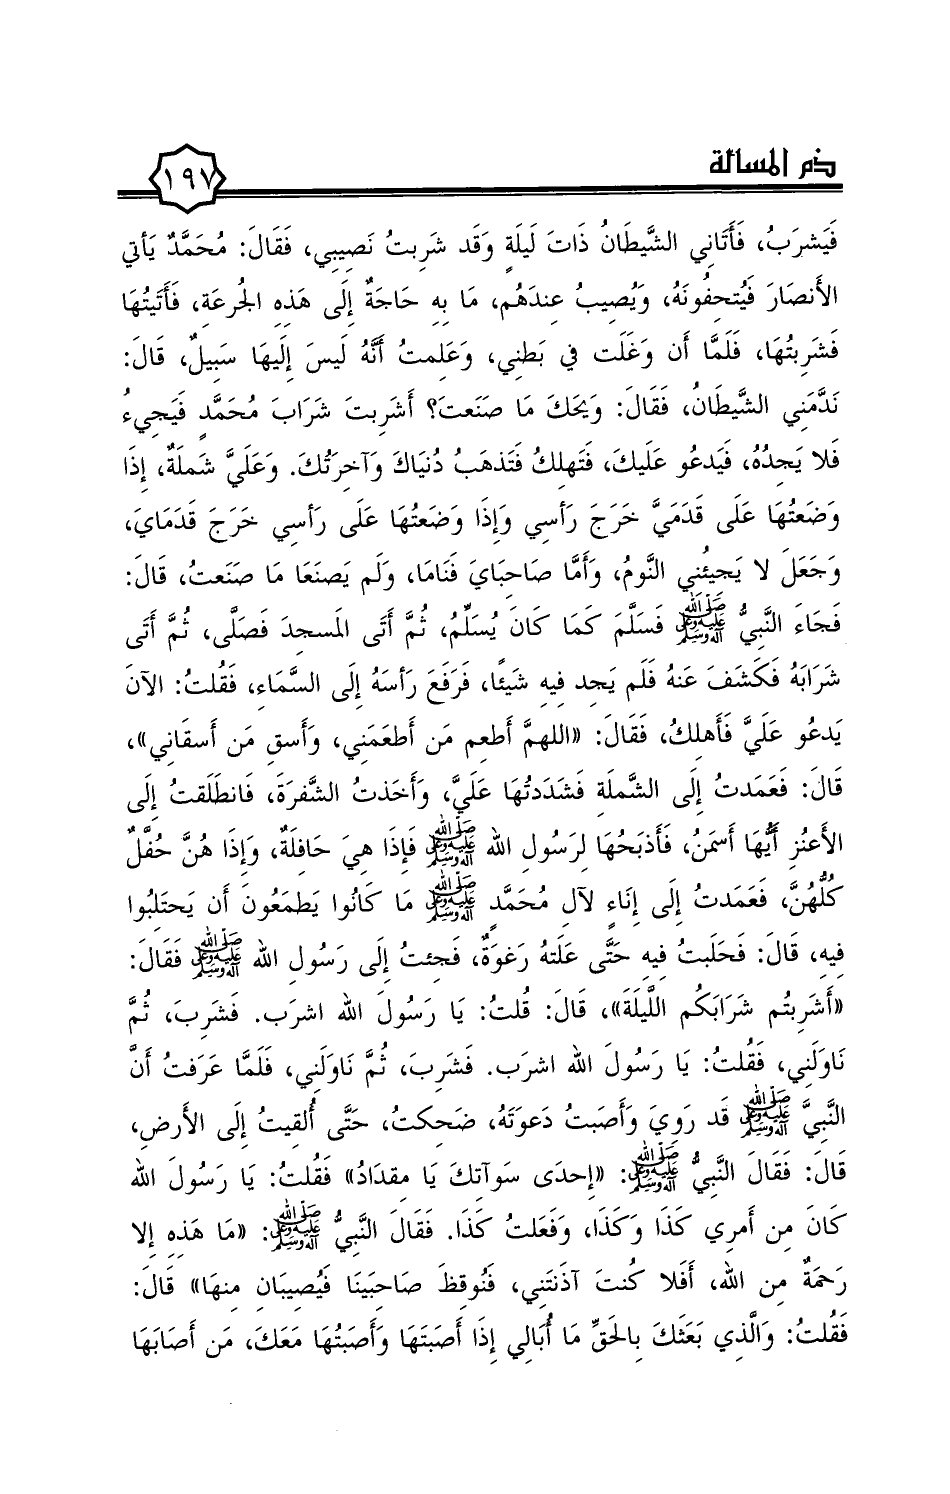 ذم المسألة
١٩٧
فَيَشرَبُ، فَأَتَاني الشَّيطَانُ ذَاتَ لَيلَةٍ وَقَد شَرِبتُ نَصِيبِي، فَقَالَ: مُحَمَّدٌ يَأتي
الأَنصَارَ فَيُتحِفُونَهُ، وَيُصِيبُ عِندَهُم، مَا بِهِ حَاجَةٌ إِلَى هَذِهِ الجُرعَةِ، فَأَتَيتُهَا
فَشَرِبتُهَا، فَلَمَّا أَن وَغَلَت في بَطنِي، وَعَلِمتُ أَنَّهُ لَيسَ إِلَيهَا سَبِيلٌ، قَالَ:
نَدَّمَنِي الشَّيطَانُ، فَقَالَ: وَيحَكَ مَا صَنَعتَ؟ أَشَرِبتَ شَرَابَ مُحَمَّدٍ فَيَجِيءُ
فَلا يَجِدُهُ، فَيَدعُو عَلَيكَ، فَتَهلِكُ فَتَذهَبُ دُنيَاكَ وَآخِرَتُكَ. وَعَلَيَّ شَملَةٌ، إِذَا
وَضَعتُهَا عَلَى قَدَمَيَّ خَرَجَ رَأسِي وَإِذَا وَضَعتُهَا عَلَى رَأسِي خَرَجَ قَدَمَايَ،
وَجَعَلَ لا يَجِيئُنِي النَّومُ، وَأَمَّا صَاحِبَايَ فَنَامَا، وَلَم يَصنَعَا مَا صَنَعتُ، قَالَ:
فَجَاءَ النَّبِيُّ ﷺ فَسَلَّمَ كَمَا كَانَ يُسَلِّمُ، ثُمَّ أَتَى المَسجِدَ فَصَلَّى، ثُمَّ أَتَى
شَرَابَهُ فَكَشَفَ عَنهُ فَلَم يَجِد فِيهِ شَيئًا، فَرَفَعَ رَأسَهُ إِلَى السَّمَاءِ، فَقُلتُ: الآنَ
يَدعُو عَلَيَّ فَأَهلِكُ، فَقَالَ: «اللهمَّ أَطعِم مَن أَطعَمَنِي، وَأَسقِ مَن أَسقَاني»،
قَالَ: فَعَمَدتُ إِلَى الشَّملَةِ فَشَدَدتُهَا عَلَيَّ، وَأَخَذتُ الشَّفرَةَ، فَانطَلَقتُ إِلَى
الأَعنُزِ أَيُّهَا أَسمَنُ، فَأَذبَحُهَا لِرَسُولِ الله ﷺ فَإِذَا هِيَ حَافِلَةٌ، وَإِذَا هُنَّ حُفَّلٌ
كُلُّهُنَّ، فَعَمَدتُ إِلَى إِنَاءٍ لآلِ مُحَمَّدٍ ﷺ مَا كَانُوا يَطمَعُونَ أَن يَحتَلِبُوا
فِيهِ، قَالَ: فَحَلَبتُ فِيهِ حَتَّى عَلَتهُ رَغوَةٌ، فَجِئتُ إِلَى رَسُولِ الله ﷺ فَقَالَ:
«أَشَرِبتُم شَرَابَكُم اللَّيلَةَ»، قَالَ: قُلتُ: يَا رَسُولَ الله اشرَب. فَشَرِبَ، ثُمَّ
نَاوَلَنِي، فَقُلتُ: يَا رَسُولَ الله اشرَب. فَشَرِبَ، ثُمَّ نَاوَلَنِي، فَلَمَّا عَرَفتُ أَنَّ
النَّبِيَّ ﷺ قَد رَوِيَ وَأَصَبتُ دَعوَتَهُ، ضَحِكتُ، حَتَّى أُلقِيتُ إِلَى الأَرضِ،
قَالَ: فَقَالَ النَّبِيُّ ﷺ: «إِحدَى سَوآتِكَ يَا مِقدَادُ» فَقُلتُ: يَا رَسُولَ الله
كَانَ مِن أَمرِي كَذَا وَكَذَا، وَفَعَلتُ كَذَا. فَقَالَ النَّبِيُّ ﷺ: «مَا هَذِهِ إِلا
رَحمَةٌ مِن الله، أَفَلا كُنتَ آذَنتَنِي، فَنُوقِظَ صَاحِبَينَا فَيُصِيبَانِ مِنهَا» قَالَ:
فَقُلتُ: وَالَّذِي بَعَثَكَ بِالحَقِّ مَا أُبَالِي إِذَا أَصَبتَهَا وَأَصَبتُهَا مَعَكَ، مَن أَصَابَهَا